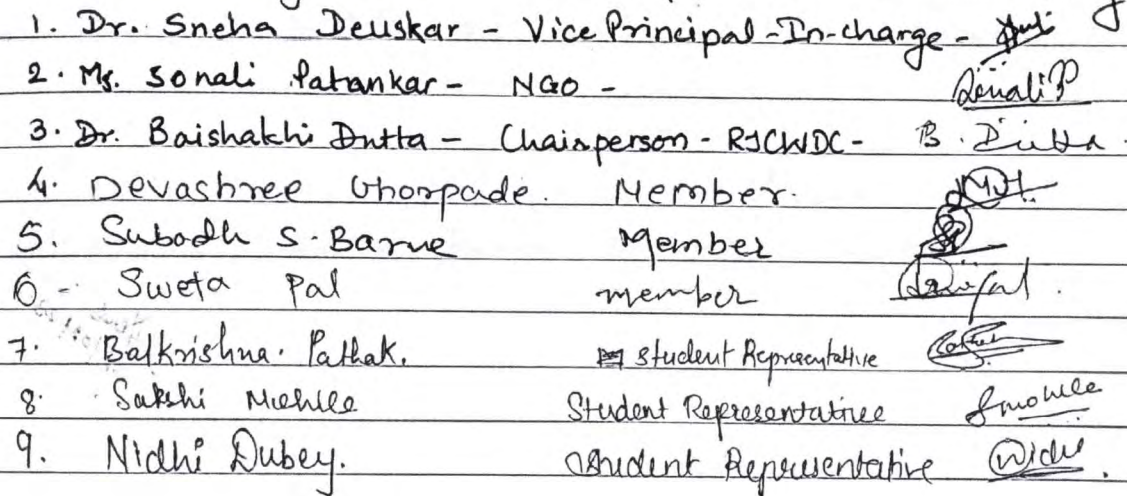 1. Dr. Sneha Deuskar - Vice Principal-In-charge -
2. Ms. Sonali Patankar - NGO - Sonali P
3. Dr. Baishakhi Dutta - Chairperson - RJCWDC - B. Dutta.
4. Devashree Ghorpade. Member.
5. Subodh S. Barve Member
6 - Sweta Pal member
7. Balkrishna. Pathak. Student Representative
8. Sakshi Mohile Student Representative Smohile
9. Nidhi Dubey. Student Representative Nidhi.